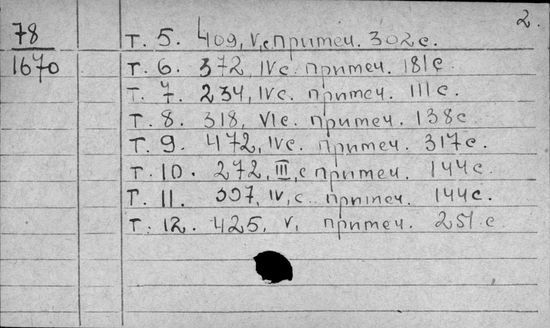 2.
78
1670
Т. 5. 409, V, с примеч. 302 с.
Т. 6. 372, IV с. примеч. 181 с.
Т. 7. 234, IV с. примеч. 111 с.
Т. 8. 318, VI с. примеч. 138 с.
Т. 9. 472, IV с. примеч. 317 с.
Т. 10. 272, III, с примеч. 144 с.
Т. 11. IV, с. примеч. 144 с.
Т. 12. 425, V, примеч. 251 с.